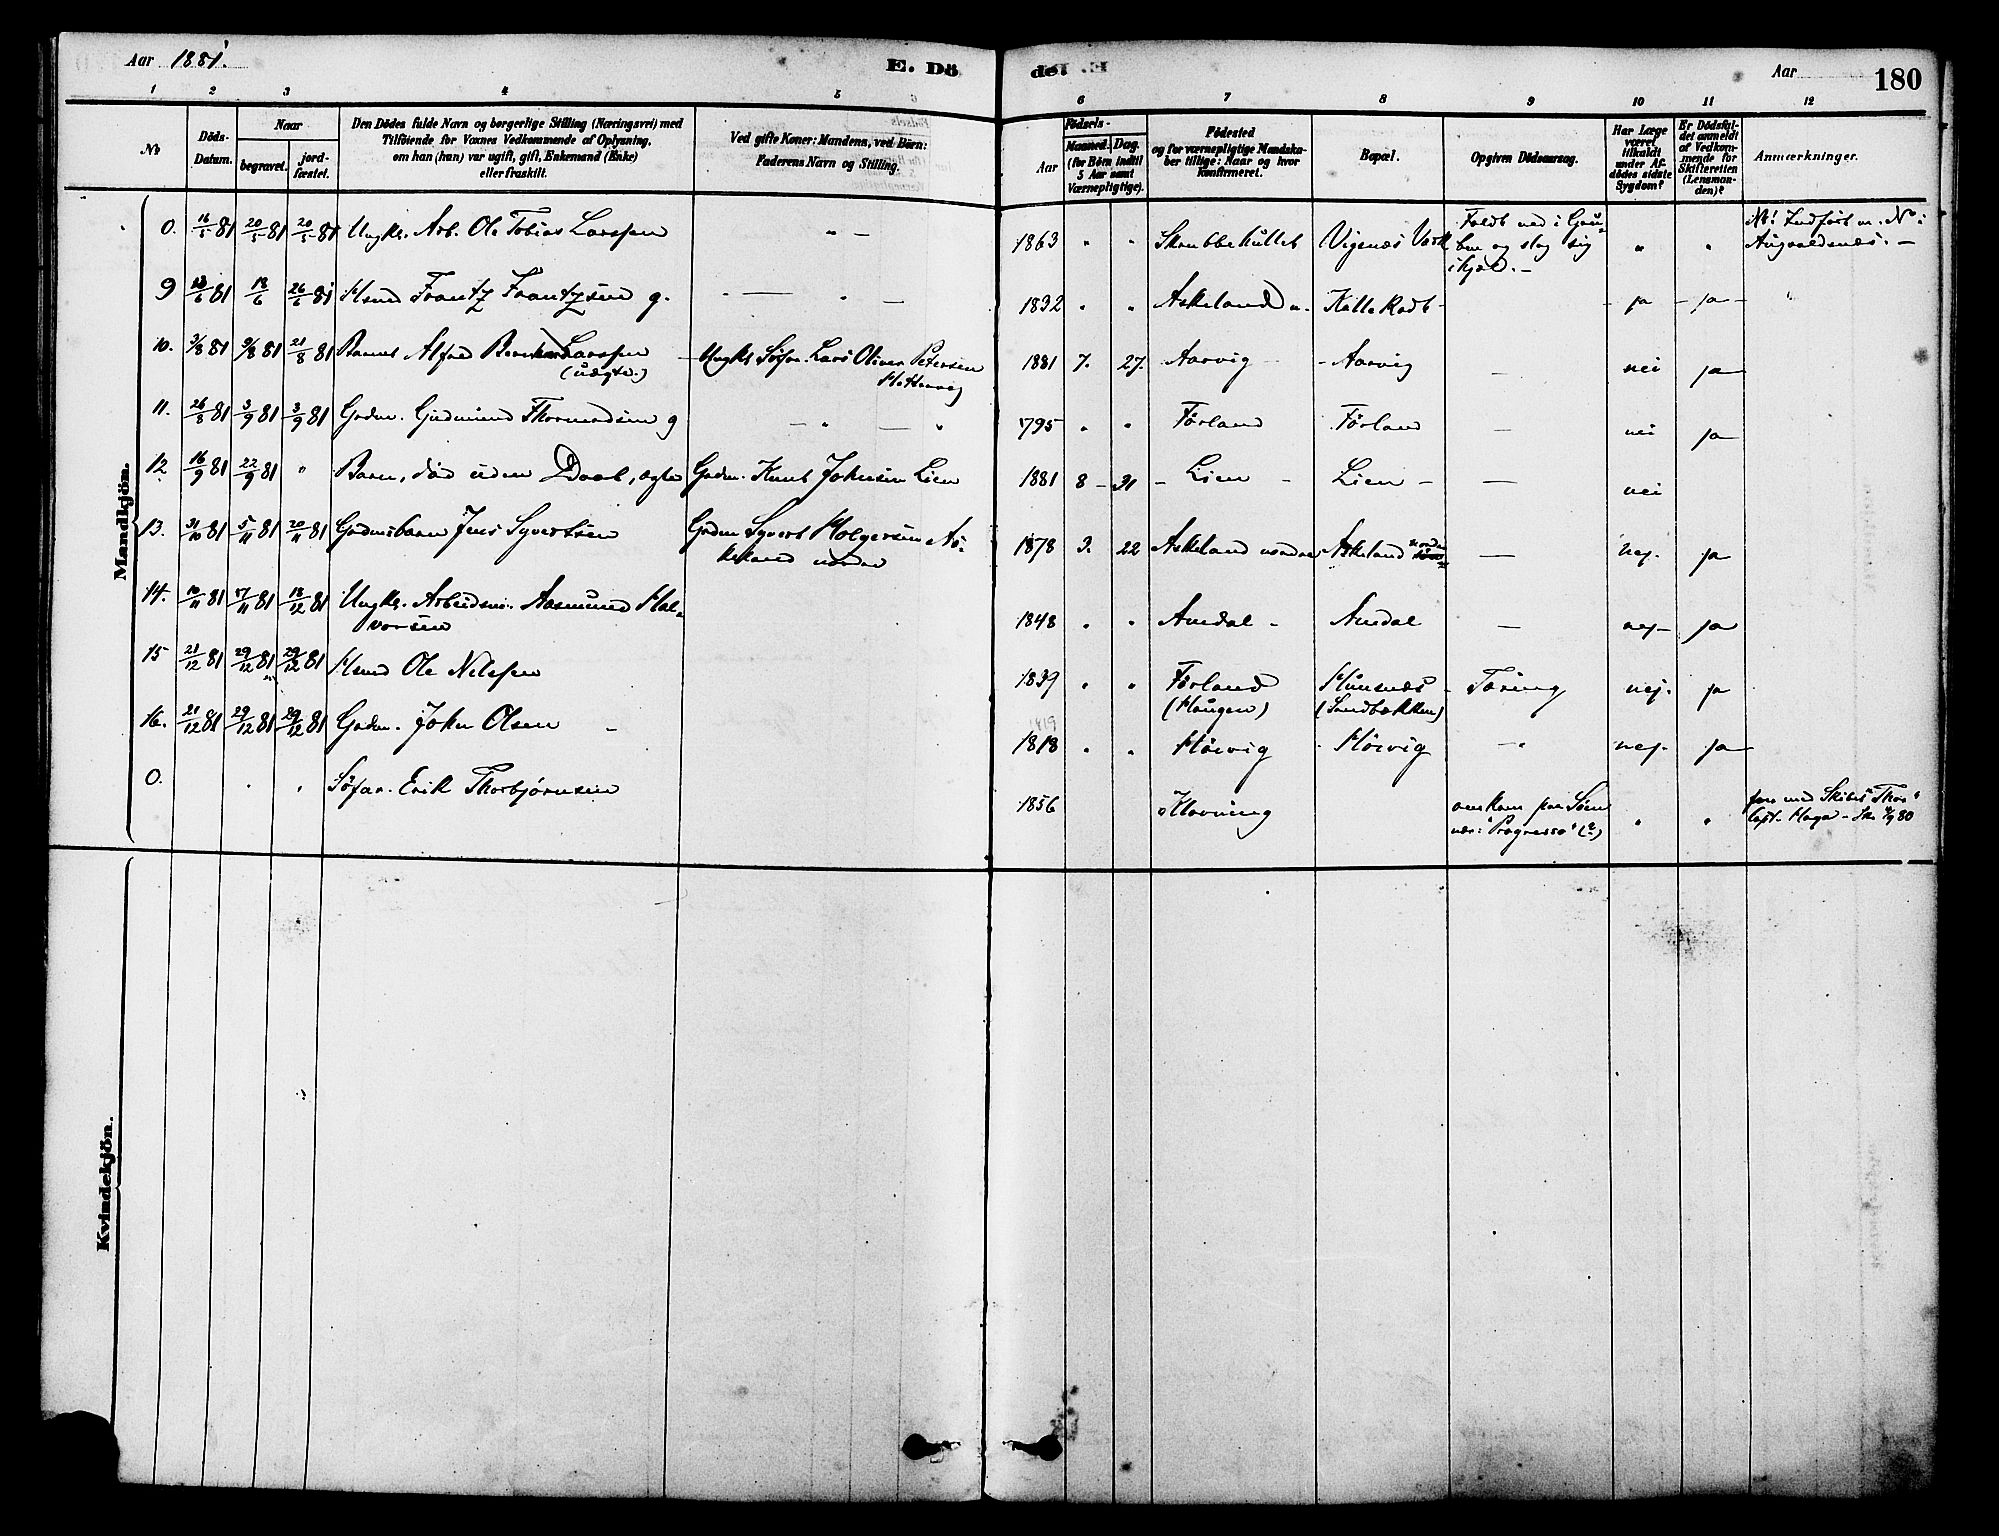 Aar 1881.
E. Dö
de. E.
Aar
180
1 2 3 4 5 6 7 8 9 10 11 12
No
Döds-Datum.
Naar
begravet.
jord-fæstet.
Den Dödes fulde Navn og borgerlige Stilling (Næringsvei) med
Tilföiende for Voxnes Vedkommende af Oplysning,
om han (hun) var ugift, gift, Enkemand (Enke)
eller fraskilt.
Ved gifte Koner: Mandens, ved Börn:
Faderens Navn og Stilling.
Födsels-
Aar
Maaned. Dag.
(for Börn indtil
5 Aar samt
Værnepligtige).
Födested
og for værnepligtige Mandska-
ber tillige: Naar og hvor
konfirmeret.
Bopæl.
Opgiven Dödsaarsag.
Har Læge
været
tilkaldt
under Af-
dödes sidste
Sygdom?
Er Dödsfal-
det anmeldt
af Vedkom-
mende for
Skifteretten
(Lensman-
den)?
Anmærkninger.
Mandkjön.
0. 16/5 81 20/5 81 20/5 81 Ungk. Arb. Ole Tobias Larssen " — 1863 " " Skrubbehullet Vigsnæs Værk Faldt ned i Gru-
ben og slog sig
ihjel. — " "
Augvaldsnæs. —
9 6 81 18/6 26/6 81 Hmd Frantz Frantzsen g. — " — 1832 " " Askeland n. Kallekodt - ja - ja -
10. 3/8 81 9/8 81 21/8 81 Barnet Alfred Larssen
(uægte.) Ungk. Søfar. Lars Oliver Petersen
1881 7. 27. Aarvig - Aarvig — nei ja
11. 26/8 81 3/9 81 3/9 81 Gdm. Gudmund Thormodsen g — " — " 1795 " " Førland Førland — nei ja
12. 16/9 81 22/9 81 " Barn, død uden Daab, ægte Gdm. Knut Johnsen Lien 1881 8 - 31 - Lien - Lien - — nei
13. 31/10 81 5/11 81 20/11 81 Gdmsbarn Jens Syvertsen Gdm Syvert Holgersen As-
keland nordre 1878 3. 22 Askeland nordre Askeland nordre — nej. ja
14. 10/11 81 17/11 81 18/12 81 Ungk. Arbeidsm. Aasmund Hal-
vorsen 1848 " " Amdal - Amdal — nej - ja
15 21/12 81 29/12 81 29/12 81 Hmd Ole Nilssen 1839 " " Førland
(Haugen) Hunsnæs
(Sandbækken) - Tæring nej. ja
16. 21/12 81 29/12 81 29/12 81 Gdm. John Olsen - 1819
1818 " " Hørvig - Hørvig — " nej. ja
0. " " Søfar. Erik Thorbjørnsen 1856 Klovning omkom paa Søen
"Progresso" (?) " " for med Skibet "Thor"
Capt. Haga
Kvindekjön.